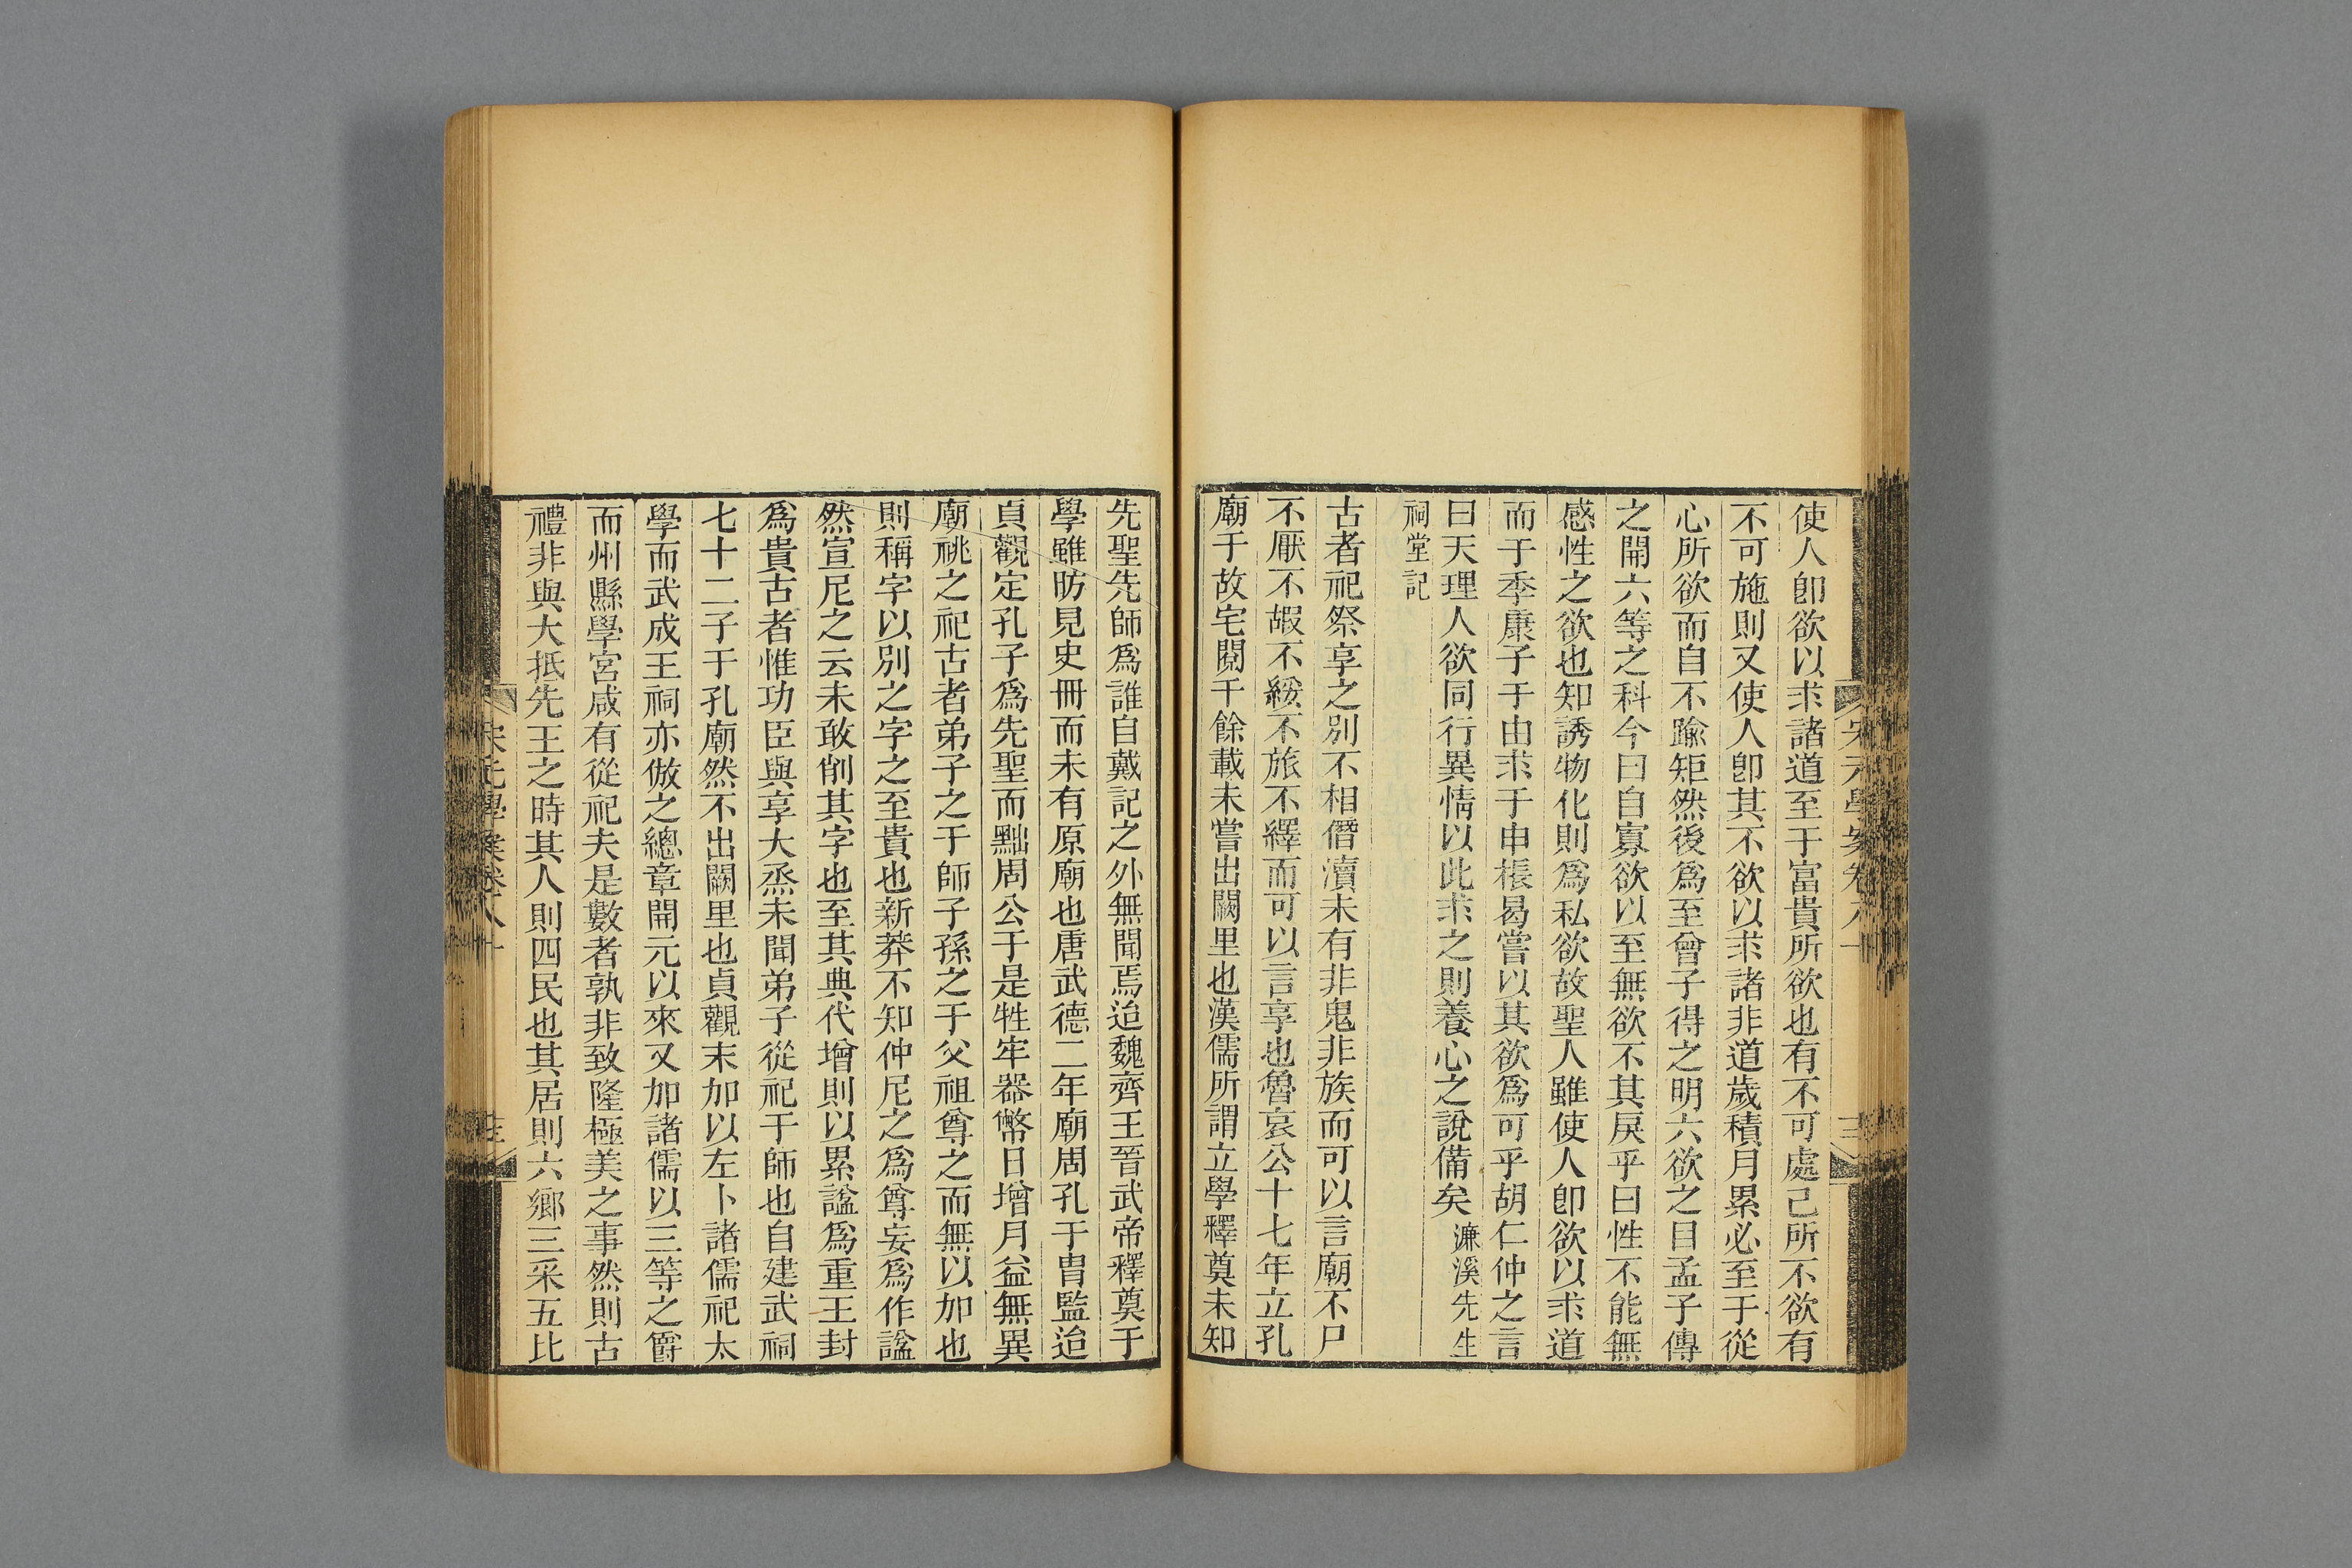 使人卽欲以求諸道至于富貴所欲也有不可處己所不欲有
不可施則又使人卽其不欲以求諸非道歲積月累必至于從
心所欲而自不踰矩然後爲至曾子得之明六欲之目孟子傳
之開六等之科今曰自寡欲以至無欲不其戾乎曰性不能無
感性之欲也知誘物化則爲私欲故聖人雖使人卽欲以求道
而于季康子于由求于申棖曷嘗以其欲爲可乎胡仁仲之言
曰天理人欲同行異情以此求之則養心之說備矣濂溪先生
祠堂記
古者祀祭享之別不相僭瀆未有非鬼非族而可以言廟不尸
不厭不嘏不綏不旅不繹而可以言享也魯哀公十七年立孔
廟于故宅閱千餘載未嘗出闕里也漢儒所謂立學釋奠未知
先聖先師爲誰自戴記之外無聞焉迨魏齊王晉武帝釋奠于
學雖昉見史冊而未有原廟也唐武德二年廟周孔于胄監迨
貞觀定孔子爲先聖而黜周公于是牲牢器幣日增月益無異
廟祧之祀古者弟子之于師子孫之于父祖尊之而無以加也
則稱字以別之字之至貴也新莽不知仲尼之爲尊妄爲作諡
然宣尼之云未敢削其字也至其典代增則以累諡爲重王封
爲貴古者惟功臣與享大烝未聞弟子從祀于師也自建武祠
七十二子于孔廟然不出闕里也貞觀末加以左卜諸儒祀太
學而武成王祠亦倣之總章開元以來又加諸儒以三等之爵
而州縣學宮咸有從祀夫是數者孰非致隆極美之事然則古
禮非與大抵先王之時其人則四民也其居則六鄉三采五比
宋元學案卷八十